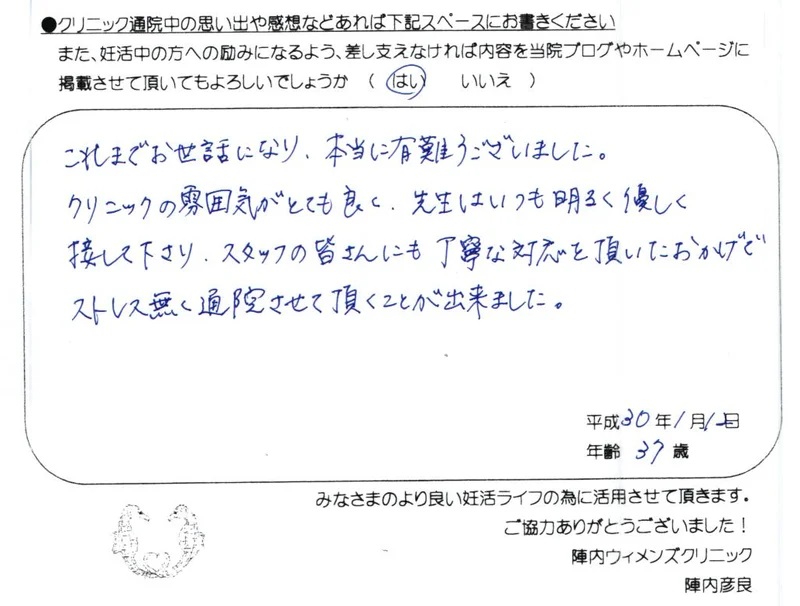 ●クリニック通院中の思い出や感想などあれば下記スペースにお書きください
また、妊活中の方への励みになるよう、差し支えなければ内容を当院ブログやホームページに
掲載させて頂いてもよろしいでしょうか ( はい いいえ )
これまでお世話になり、本当に有難うございました。
クリニックの雰囲気がとても良く、先生はいつも明るく優しく
接して下さり、スタッフの皆さんにも丁寧な対応を頂いたおかげで
ストレス無く通院させて頂くことが出来ました。
平成30年1月 日
年齢 37歳
みなさまのより良い妊活ライフの為に活用させて頂きます。
ご協力ありがとうございました!
陣内ウィメンズクリニック
陣内彦良